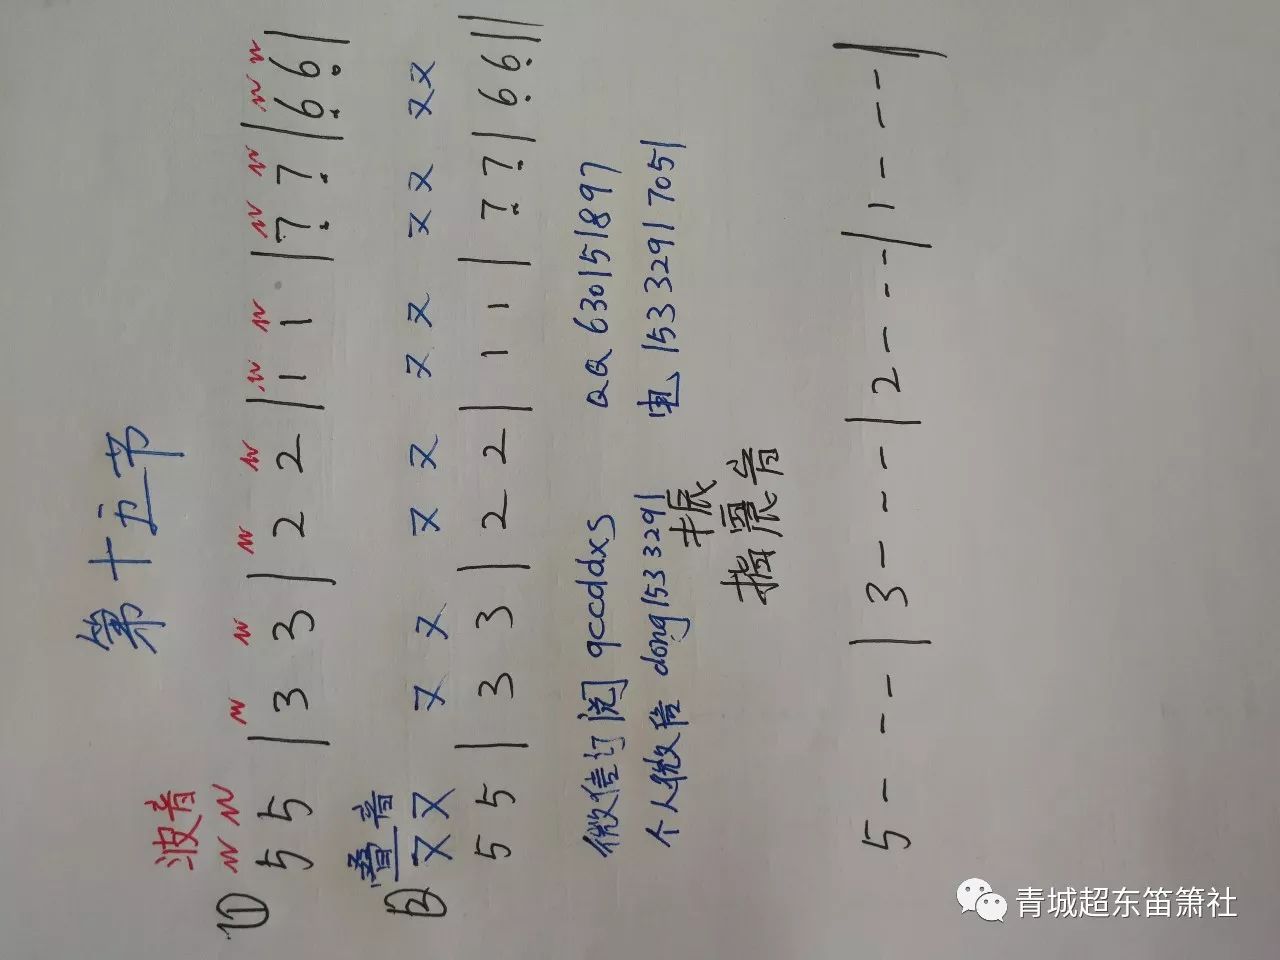 第十五节
波音
① 5 5 | 3 3 | 2 2 | 1 1 | 7̣ 7̣ | 6̣ 6̣ |
叠音
② 又又 又 又 又 又 又 又 又 又 又又
5 5 | 3 3 | 2 2 | 1 1 | 7̣ 7̣ | 6̣ 6̣ ||
微信订阅 qccddxs QQ 630151897
个人微信 dong1533291 电 153 3291 7051
振
指震音
5 - - - | 3 - - - | 2 - - - | 1 - - - |
青城超东笛箫社